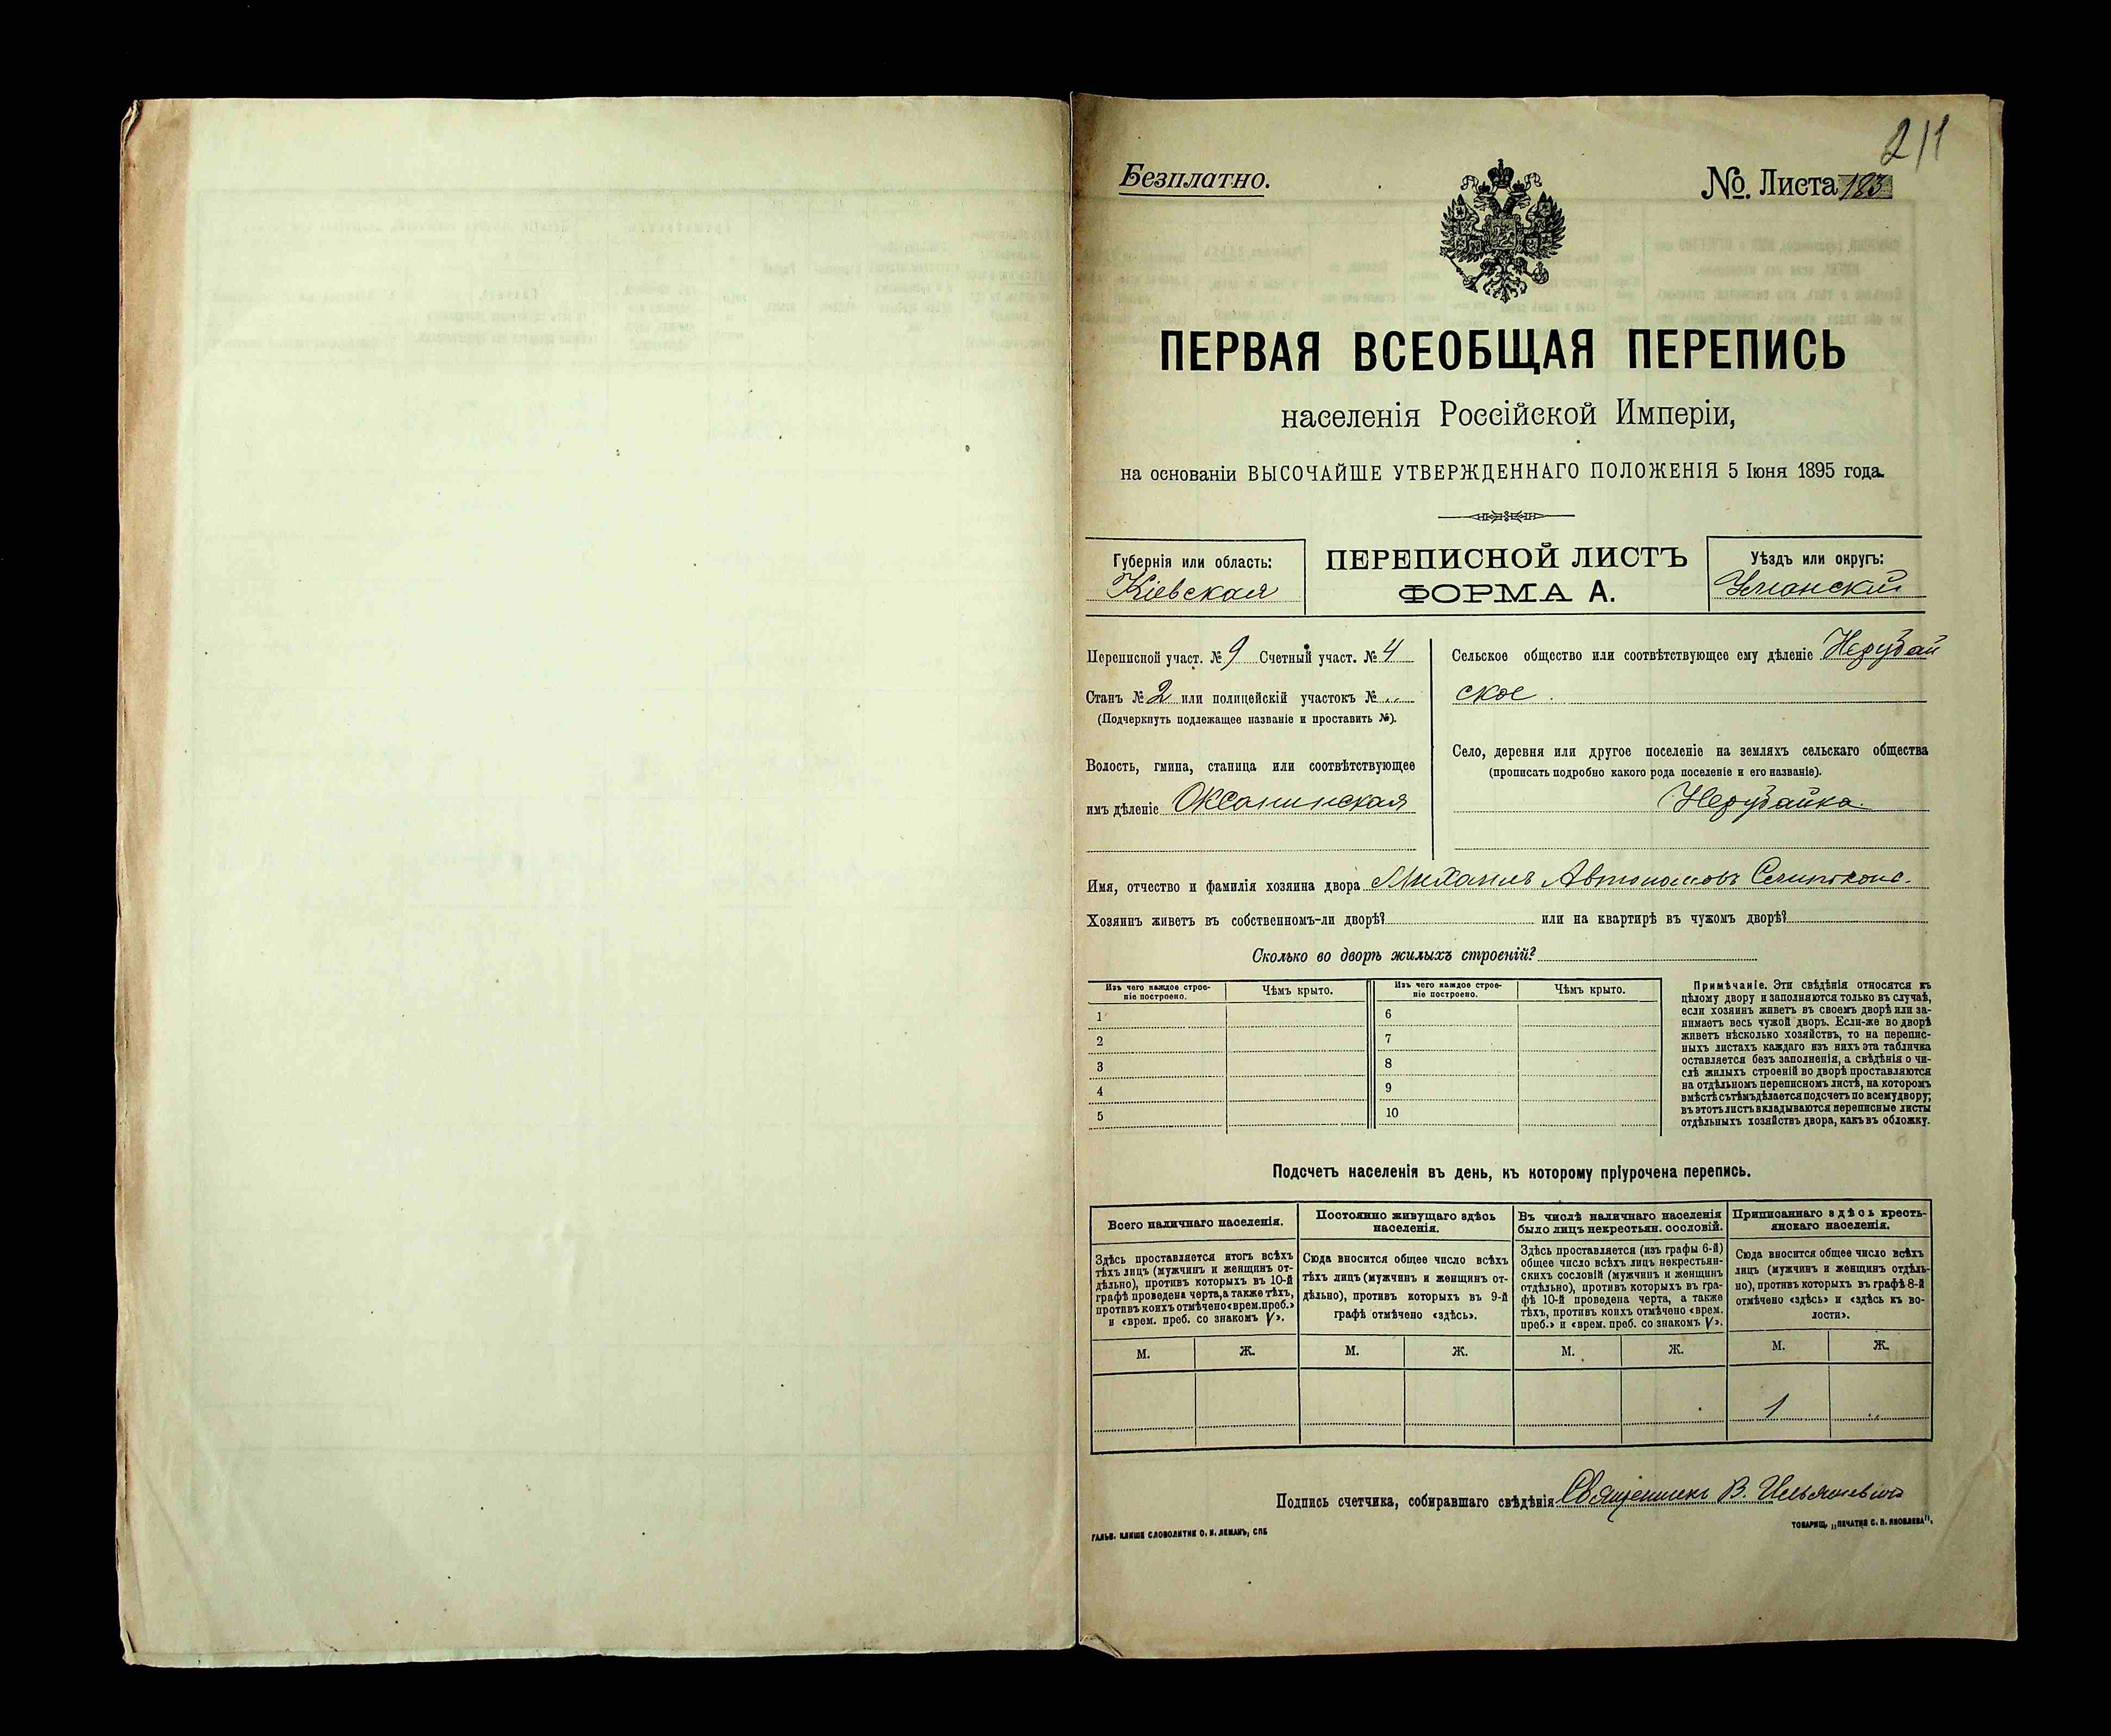 211
Безплатно.
№. Листа 183
ПЕРВАЯ ВСЕОБЩАЯ ПЕРЕПИСЬ
населенія Россійской Имперіи,
на основаніи ВЫСОЧАЙШЕ УТВЕРЖДЕННАГО ПОЛОЖЕНІЯ 5 Іюня 1895 года.
Губернія или область:
Кіевская
ПЕРЕПИСНОЙ ЛИСТЪ
ФОРМА А.
Уѣздъ или округъ:
Уманскій
Переписной участ. № 9 Счетный участ. № 4
Станъ № 2 или полицейскій участокъ № „
(Подчеркнуть подлежащее названіе и проставить №).
Волость, гмина, станица или соотвѣтствующее
имъ дѣленіе Оксанинская
Сельское общество или соотвѣтствующее ему дѣленіе Нерубай
ское
Село, деревня или другое поселеніе на земляхъ сельскаго общества
(прописать подробно какого рода поселеніе и его названіе).
Нерубайка.
Имя, отчество и фамилія хозяина двора Михаилъ Автономовъ
Хозяинъ живетъ въ собственномъ-ли дворѣ? или на квартирѣ въ чужомъ дворѣ?
Сколько во дворѣ жилыхъ строеній?
Изъ чего каждое строе-
ніе построено.
Чѣмъ крыто.
Изъ чего каждое строе-
ніе построено.
Чѣмъ крыто.
1
2
3
4
5
6
7
8
9
10
Примѣчаніе. Эти свѣдѣнія относятся къ
цѣлому двору и заполняются только въ случаѣ,
если хозяинъ живетъ въ своемъ дворѣ или за-
нимаетъ весь чужой дворъ. Если-же во дворѣ
живетъ нѣсколько хозяйствъ, то на перепис-
ныхъ листахъ каждаго изъ нихъ эта табличка
оставляется безъ заполненія, а свѣдѣнія о чи-
слѣ жилыхъ строеній во дворѣ проставляются
на отдѣльномъ переписномъ листѣ, на которомъ
вмѣстѣ съ тѣмъ дѣлается подсчетъ по всему двору;
въ этотъ листъ вкладываются переписные листы
отдѣльныхъ хозяйствъ двора, какъ въ обложку.
Подсчетъ населенія въ день, къ которому пріурочена перепись.
Всего наличнаго населенія.
Здѣсь проставляется итогъ всѣхъ
тѣхъ лицъ (мужчинъ и женщинъ от-
дѣльно), противъ которыхъ въ 10-й
графѣ проведена черта, а также тѣхъ,
противъ коихъ отмѣчено «врем. преб.»
и «врем. преб. со знакомъ V».
Постоянно живущаго здѣсь
населенія.
Сюда вносится общее число всѣхъ
тѣхъ лицъ (мужчинъ и женщинъ от-
дѣльно), противъ которыхъ въ 9-й
графѣ отмѣчено «здѣсь».
Въ числѣ наличнаго населенія
было лицъ некрестьян. сословій.
Здѣсь проставляется (изъ графы 6-й)
общее число всѣхъ лицъ некрестьян-
скихъ сословій (мужчинъ и женщинъ
отдѣльно), противъ которыхъ въ гра-
фѣ 10-й проведена черта, а также
тѣхъ, противъ коихъ отмѣчено «врем.
преб.» и «врем. преб. со знакомъ V».
Приписаннаго здѣсь кресть-
янскаго населенія.
Сюда вносится общее число всѣхъ
лицъ (мужчинъ и женщинъ отдѣль-
но), противъ которыхъ въ графѣ 8-й
отмѣчено «здѣсь» и «здѣсь къ во-
лости».
М. Ж. М. Ж. М. Ж. М. Ж.
1 „
Подпись счетчика, собиравшаго свѣдѣнія Священникъ В.
ГАЛЬВ. КЛИШЕ СЛОВОЛИТНИ О. И. ЛЕМАНЪ, СПБ
ТОВАРИЩ. „ПЕЧАТНЯ С. П. ЯКОВЛЕВА“.